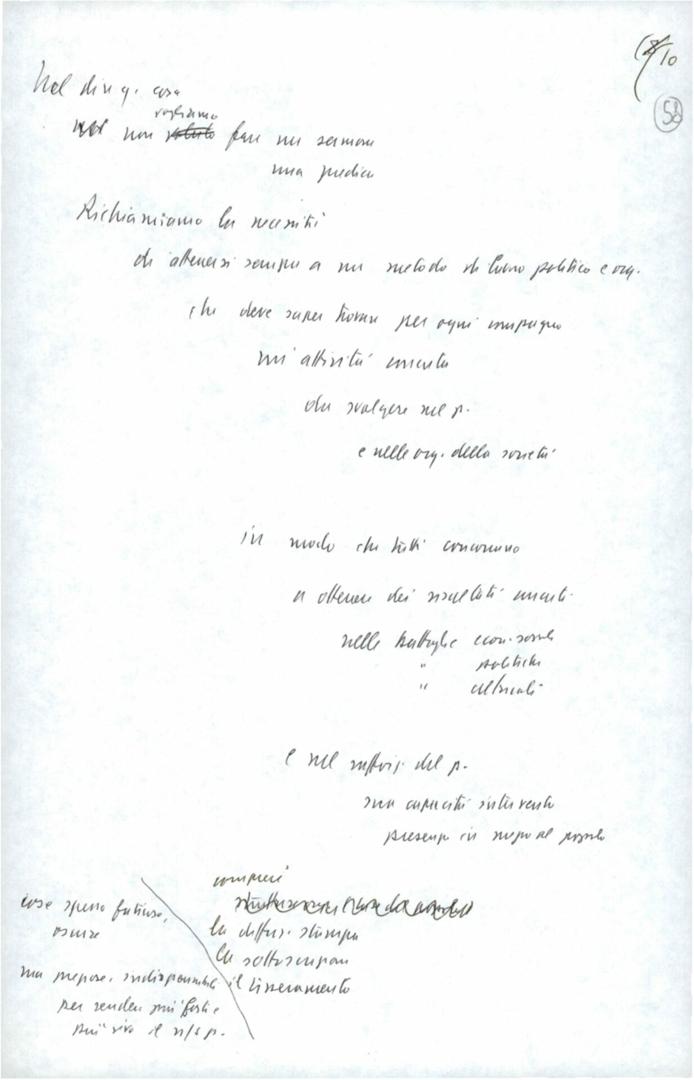 10
58
Nel dir q. cose
vogliamo
non fare un sermone
una predica
Richiamiamo la necessità
di attenersi sempre a un metodo di lavoro politico e org.
che deve saper trovare per ogni compagno
un'attività concreta
da svolgere nel p.
e nelle org. della società
in modo che tutti concorrano
a ottenere dei risultati concreti
nelle battaglie econ. sociali
" politiche
" culturali
e nel rafforz. del p.
sua capacità intervento
presenza in mezzo al popolo
compresi
la diffus. stampa
la sottoscrizione
il tesseramento
cose spesso faticose,
oscure
ma preziose, indispensabili
per rendere più forte e
più vivo il n/s p.